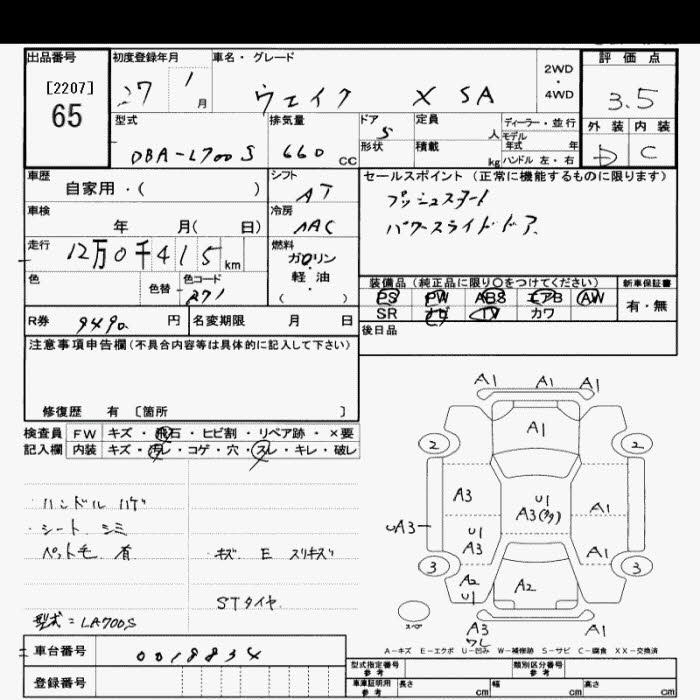 出品番号
[2207]
65
初度登録年月
27 1 月
車名・グレード
ウェイク X SA
2WD
・
4WD
評価点
3.5
外装 内装
D C
型式
DBA-L700S
排気量
660 CC
ドア
5
形状
定員 人
積載 kg
ディーラー・並行
モデル年式 年
ハンドル 左・右
車歴
自家用・( )
シフト
AT
セールスポイント (正常に機能するものに限ります)
プッシュスタート
パワースライドドア
車検
年 月( 日)
冷房
AAC
走行
12万0千415 km
燃料
ガソリン
・
軽油
( )
色 色替 色コード
装備品 (純正品に限り○をつけてください)
PS PW ABS エアB AW
SR ナビ TV カワ
新車保証書
有・無
R券 9490 円
名変期限 月 日
後日品
注意事項申告欄(不具合内容等は具体的に記入して下さい)
修復歴 有 [箇所 ]
検査員記入欄
FW キズ・飛石・ヒビ割・リペア跡・×要
内装 キズ・汚レ・コゲ・穴・スレ・キレ・破レ
ハンドル ハゲ
・シート シミ
ペット毛 有
キズ E スリキズ
STタイヤ
型式=LA700S
A1 A1 A1
A1
2 2
A3 U1 A1
A3(多)
UA3 U1 A1
A3
3 3
A2 A2
U1
スペア
A3 A1
ワレ
A-キズ E-エクボ U-凹み W-補修跡 S-サビ C-腐食 XX-交換済
車台番号
0018834
登録番号
型式指定番号
参考
類別区分番号
参考
車庫証明用
参考
長さ cm 幅 cm 高さ cm